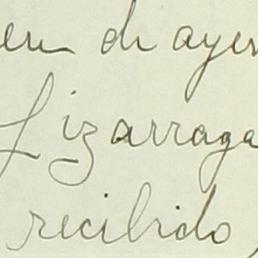 de ayer
Lizarraga
recibido,